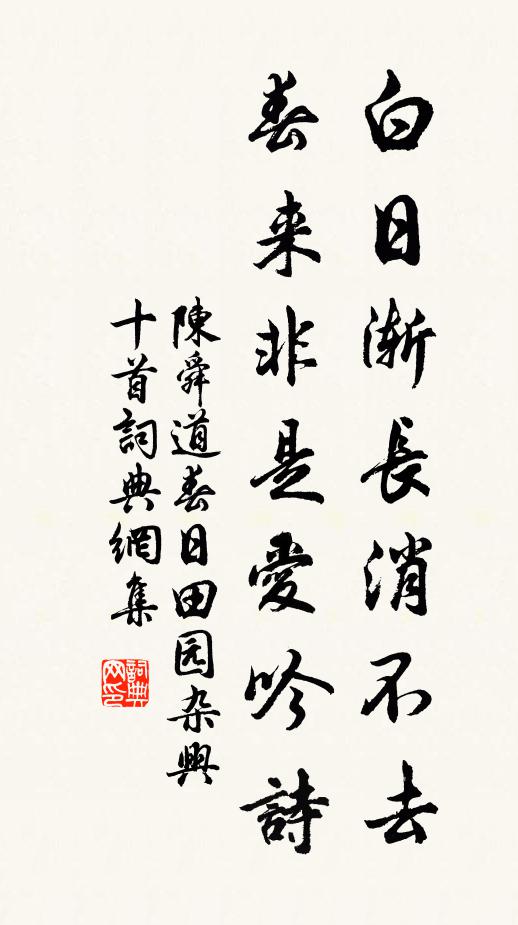 白日漸長消不去
春来非是愛吟詩
陳舜道春日田园杂興
十首詞典網集
詞典
网印